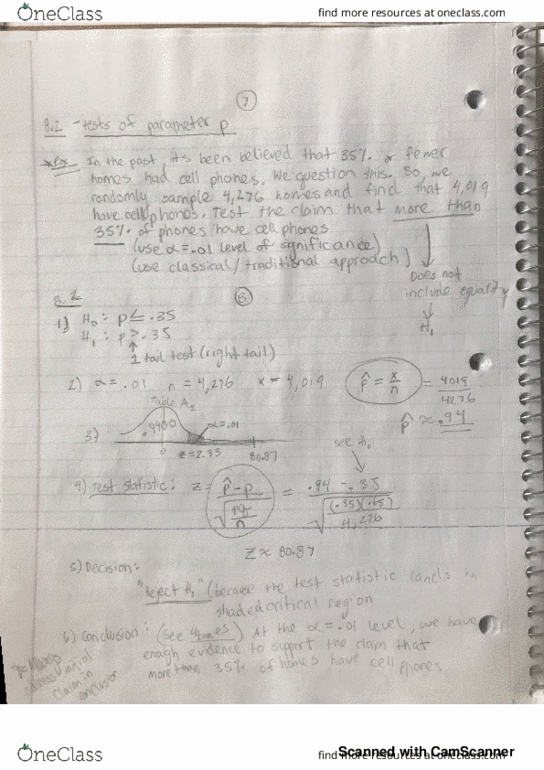 OneClass
find more resources at oneclass.com
7
8.2 - tests of parameter p
*ex In the past, its been believed that 35% or fewer
homes had cell phones. We question this. So, we
randomly sample 4,276 homes and find that 4,019
have cell phones. Test the claim that more than
35% of phones have cell phones
(use α = .01 level of significance)
(use classical/traditional approach)
Does not
include equality
H₁
8.2
8
1) H₀: p ≤ .35
H₁: p > .35
1 tail test (right tail)
2) α = .01 n = 4,276 x = 4,019 p̂ = x/n = 4019/4276
p̂ ≈ .94
3) Table A₂
.9900 α = .01
0 z = 2.33 80.87
see H₀
4) Test statistic: z = p̂ - p / √(pq/n) = .94 - .35 / √((.35)(.65)/4,276)
Z ≈ 80.87
5) Decision:
"Reject H₀" (because the test statistic lands in
shaded critical region
6) Conclusion: (see 4 ) At the α = .01 level, we have
enogh evidence to support the claim that
more than 35% of homes have cell phones
* Always
claim in
OneClass
find more resources at oneclass.com
Scanned with CamScanner